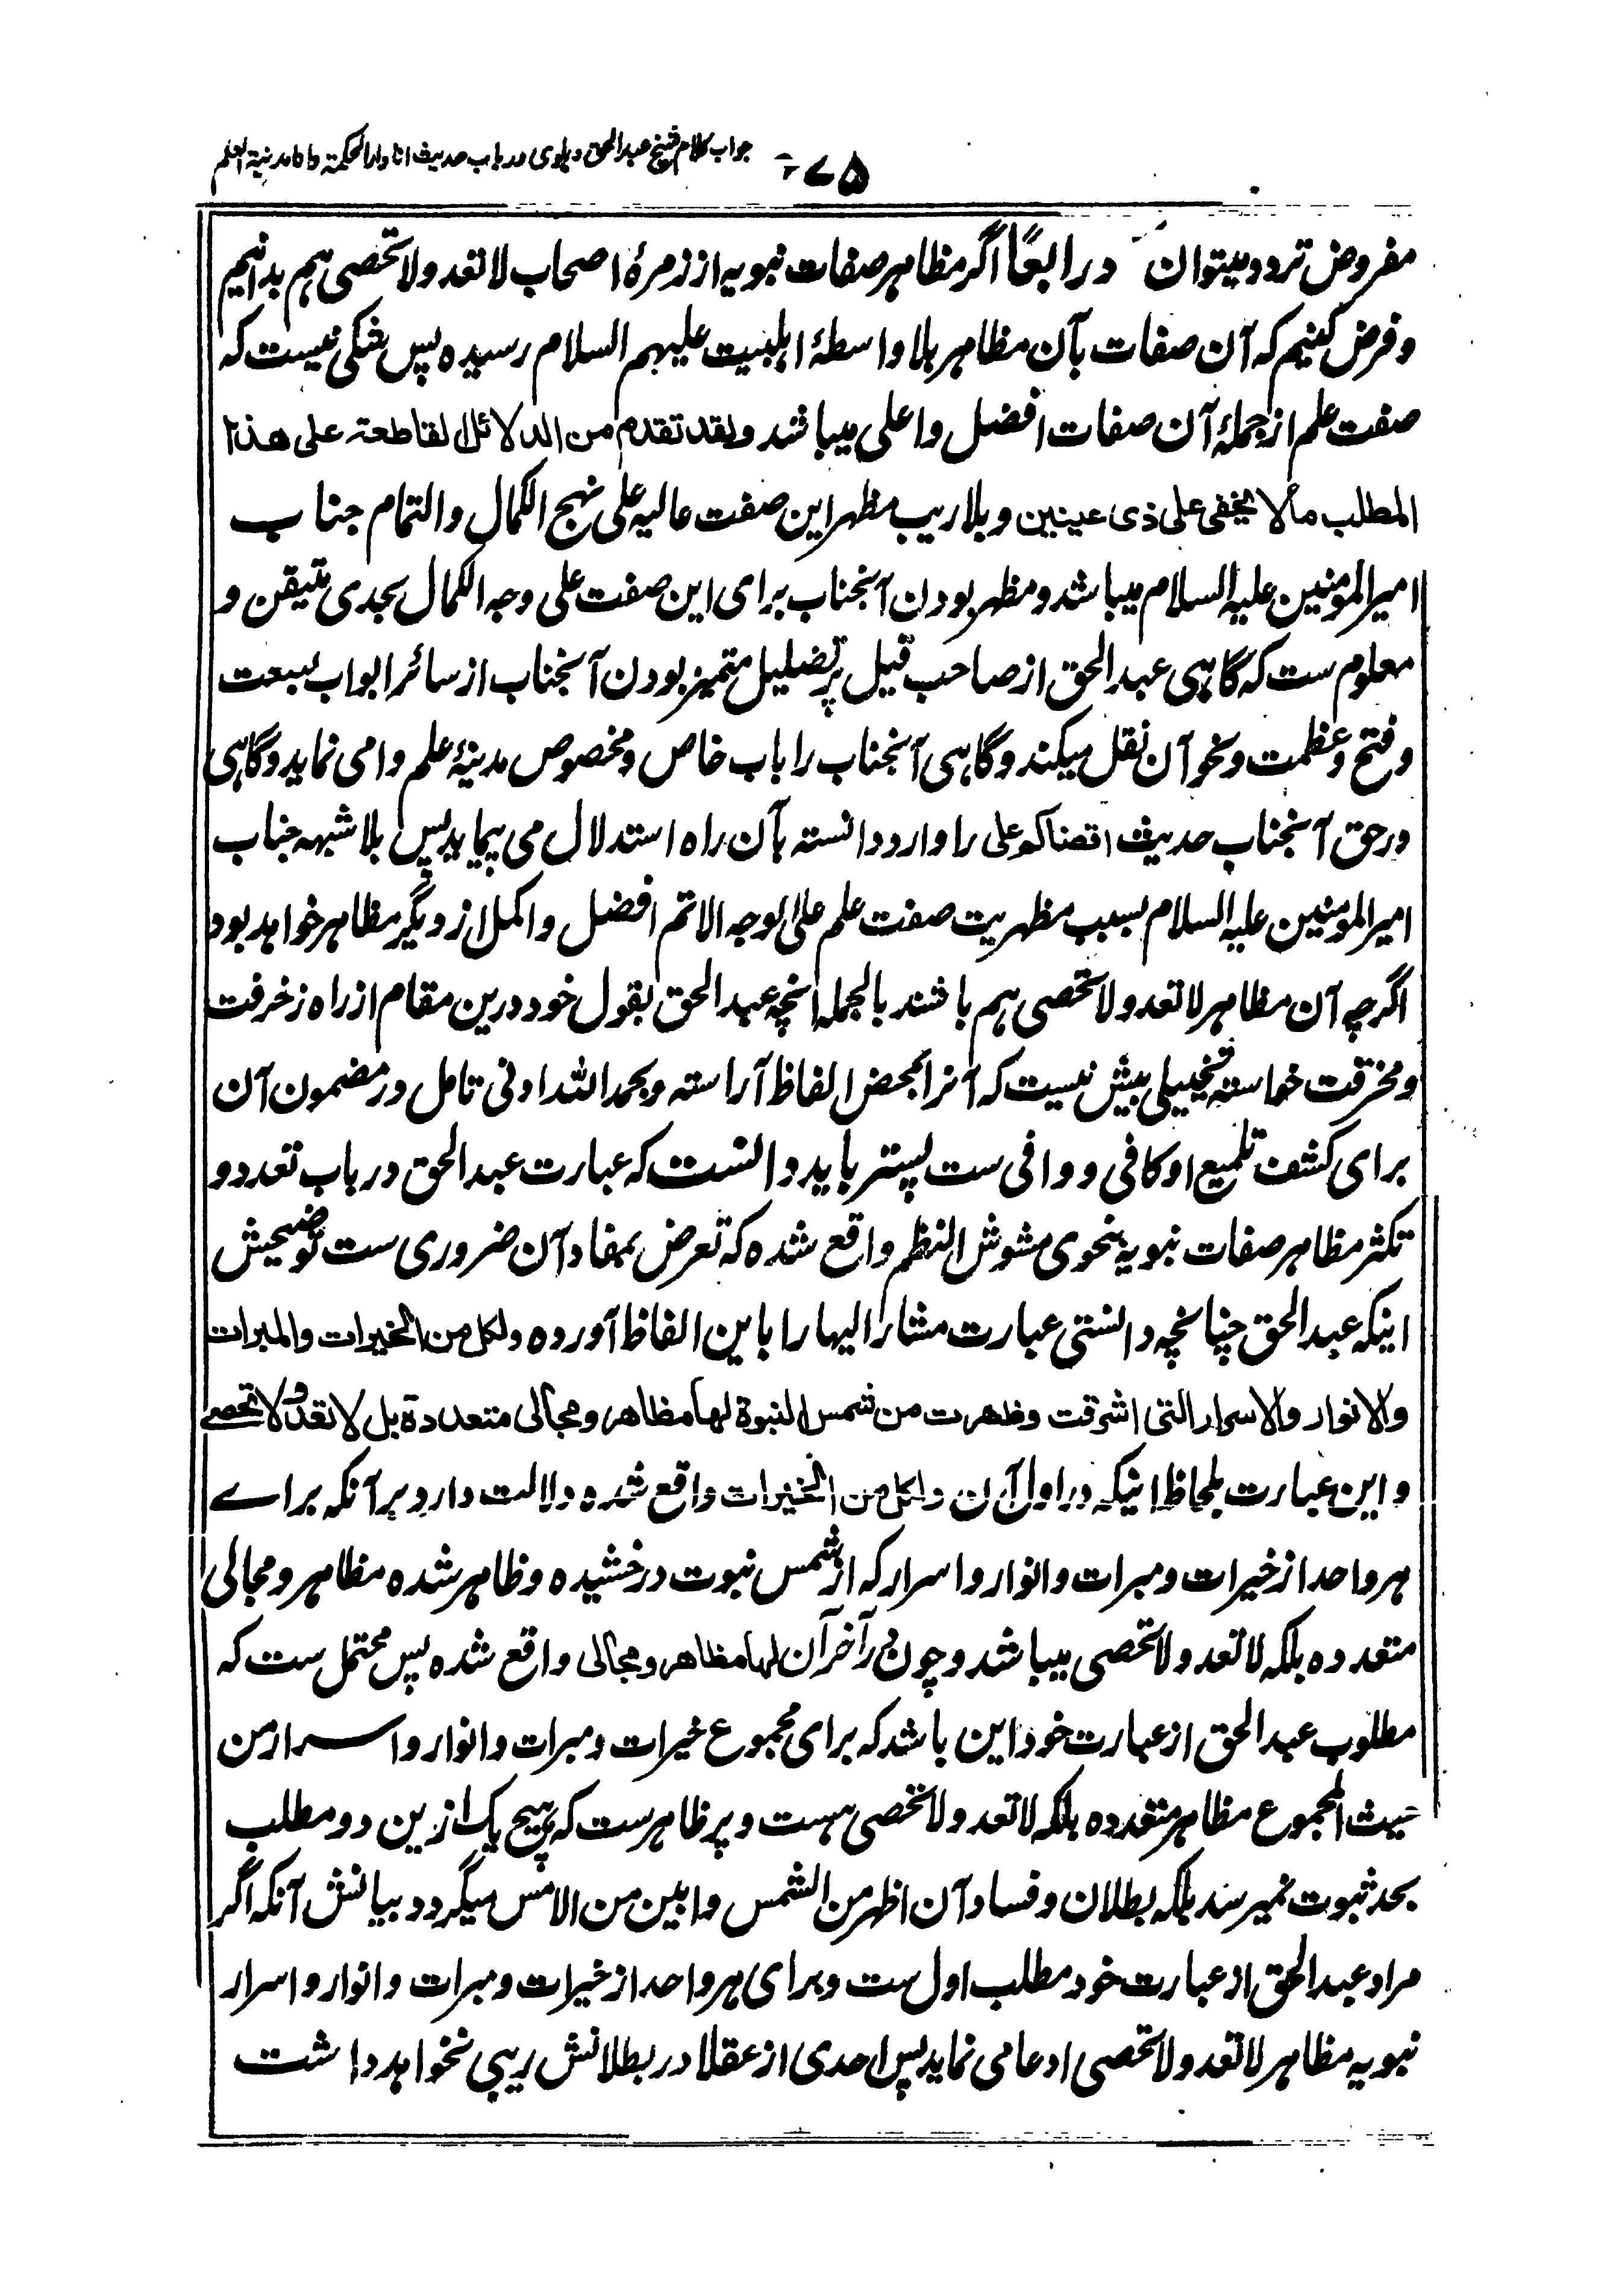 جواب کلام شیخ عبدالحق دہلوی در باب حدیث انا دار الحکمة و انا مدینة العلم
۷۵
مفروض ترود میتوان در ابعًا اگر مظاہر صفات نبویہ از زمرۂ اصحاب لا تعد و لا تحصی ہم بدانیم
و فرض کنیم کہ آن صفات بآن مظاہر بلا واسطۂ اہلبیت علیہم السلام رسیدہ پس شکی نیست کہ
صفت علم از جملۂ آن صفات افضل و اعلی میباشد ولقد تقدم من الدلائل القاطعة علی هذا
المطلب ما لا یخفی علی ذی عینین و بلا ریب مظہر این صفت عالیہ علی نہج الکمال و التمام جناب
امیر المومنین علیہ السلام میباشد و مظہر بودن آنجناب برای این صفت علی وجہ الکمال بحدی متیقن و
معلوم ست کہ گاہی عبدالحق از صاحب قیل پر تضلیل متمیز بودن آنجناب از سائر ابواب بسعت
و فتح و عظمت و نحو آن نقل میکند و گاہی آنجناب را باب خاص و مخصوص مدینۂ علم وا می نماید و گاہی
در حق آنجناب حدیث اقضاکم علی را وارد دانستہ بآن راہ استدلال می پیماید پس بلا شبہہ جناب
امیر المومنین علیہ السلام بسبب مظہریت صفت علم علی الوجہ الاتم افضل و اکمل از دیگر مظاہر خواہد بود
اگرچہ آن مظاہر لا تعد و لا تحصی ہم باشند بالجملہ انچہ عبدالحق بقول خود درین مقام از راہ زخرفت
و مخرقت خواستہ تخییلی بیش نیست کہ آنرا بمحض الفاظ آراستہ و بحمد اللہ ادنی تامل در مضمون آن
برای کشف تلمیع او کافی و وافی ست پستر باید دانست کہ عبارت عبدالحق در باب تعدد و
تکثر مظاہر صفات نبویہ بنحوی مشوش النظم واقع شدہ کہ تعرض بمفاد آن ضروری ست توضیحیش
اینکہ عبدالحق چنانچہ دانستی عبارت مشار الیہا را باین الفاظ آوردہ ولکل من الخیرات والمبرات
والانوار والاسرار التی اشرقت وظهرت من شمس النبوة لها مظاهر ومجالی متعددة بل لا تعد ولا تحصے
و این عبارت بلحاظ اینکہ در اول آن ولکل من الخیرات واقع شدہ دلالت دارد بر آنکہ براے
ہر واحد از خیرات و مبرات و انوار و اسرار کہ از شمس نبوت درخشیدہ و ظاہر شدہ مظاہر و مجالی
متعددہ بلکہ لا تعد و لا تحصی میباشد و چون در آخر آن لها مظاهر ومجالی واقع شدہ پس محتمل ست کہ
مطلوب عبدالحق از عبارت خود این باشد کہ برای مجموع خیرات و مبرات و انوار و اسرار من
حیث المجموع مظاہر متعددہ بلکہ لا تعد و لا تحصی ہست و پر ظاہرست کہ ہیچ یک ازین دو مطلب
بحد ثبوت نمیرسد بلکہ بطلان و فساد آن اظہر من الشمس و ابین من الامس میگردد بیانش آنکہ اگر
مراد عبدالحق از عبارت خود مطلب اول ست و برای ہر واحد از خیرات و مبرات و انوار و اسرار
نبویہ مظاہر لا تعد و لا تحصی ادعا می نماید پس احدی از عقلا در بطلانش ریبی نخواہد داشت